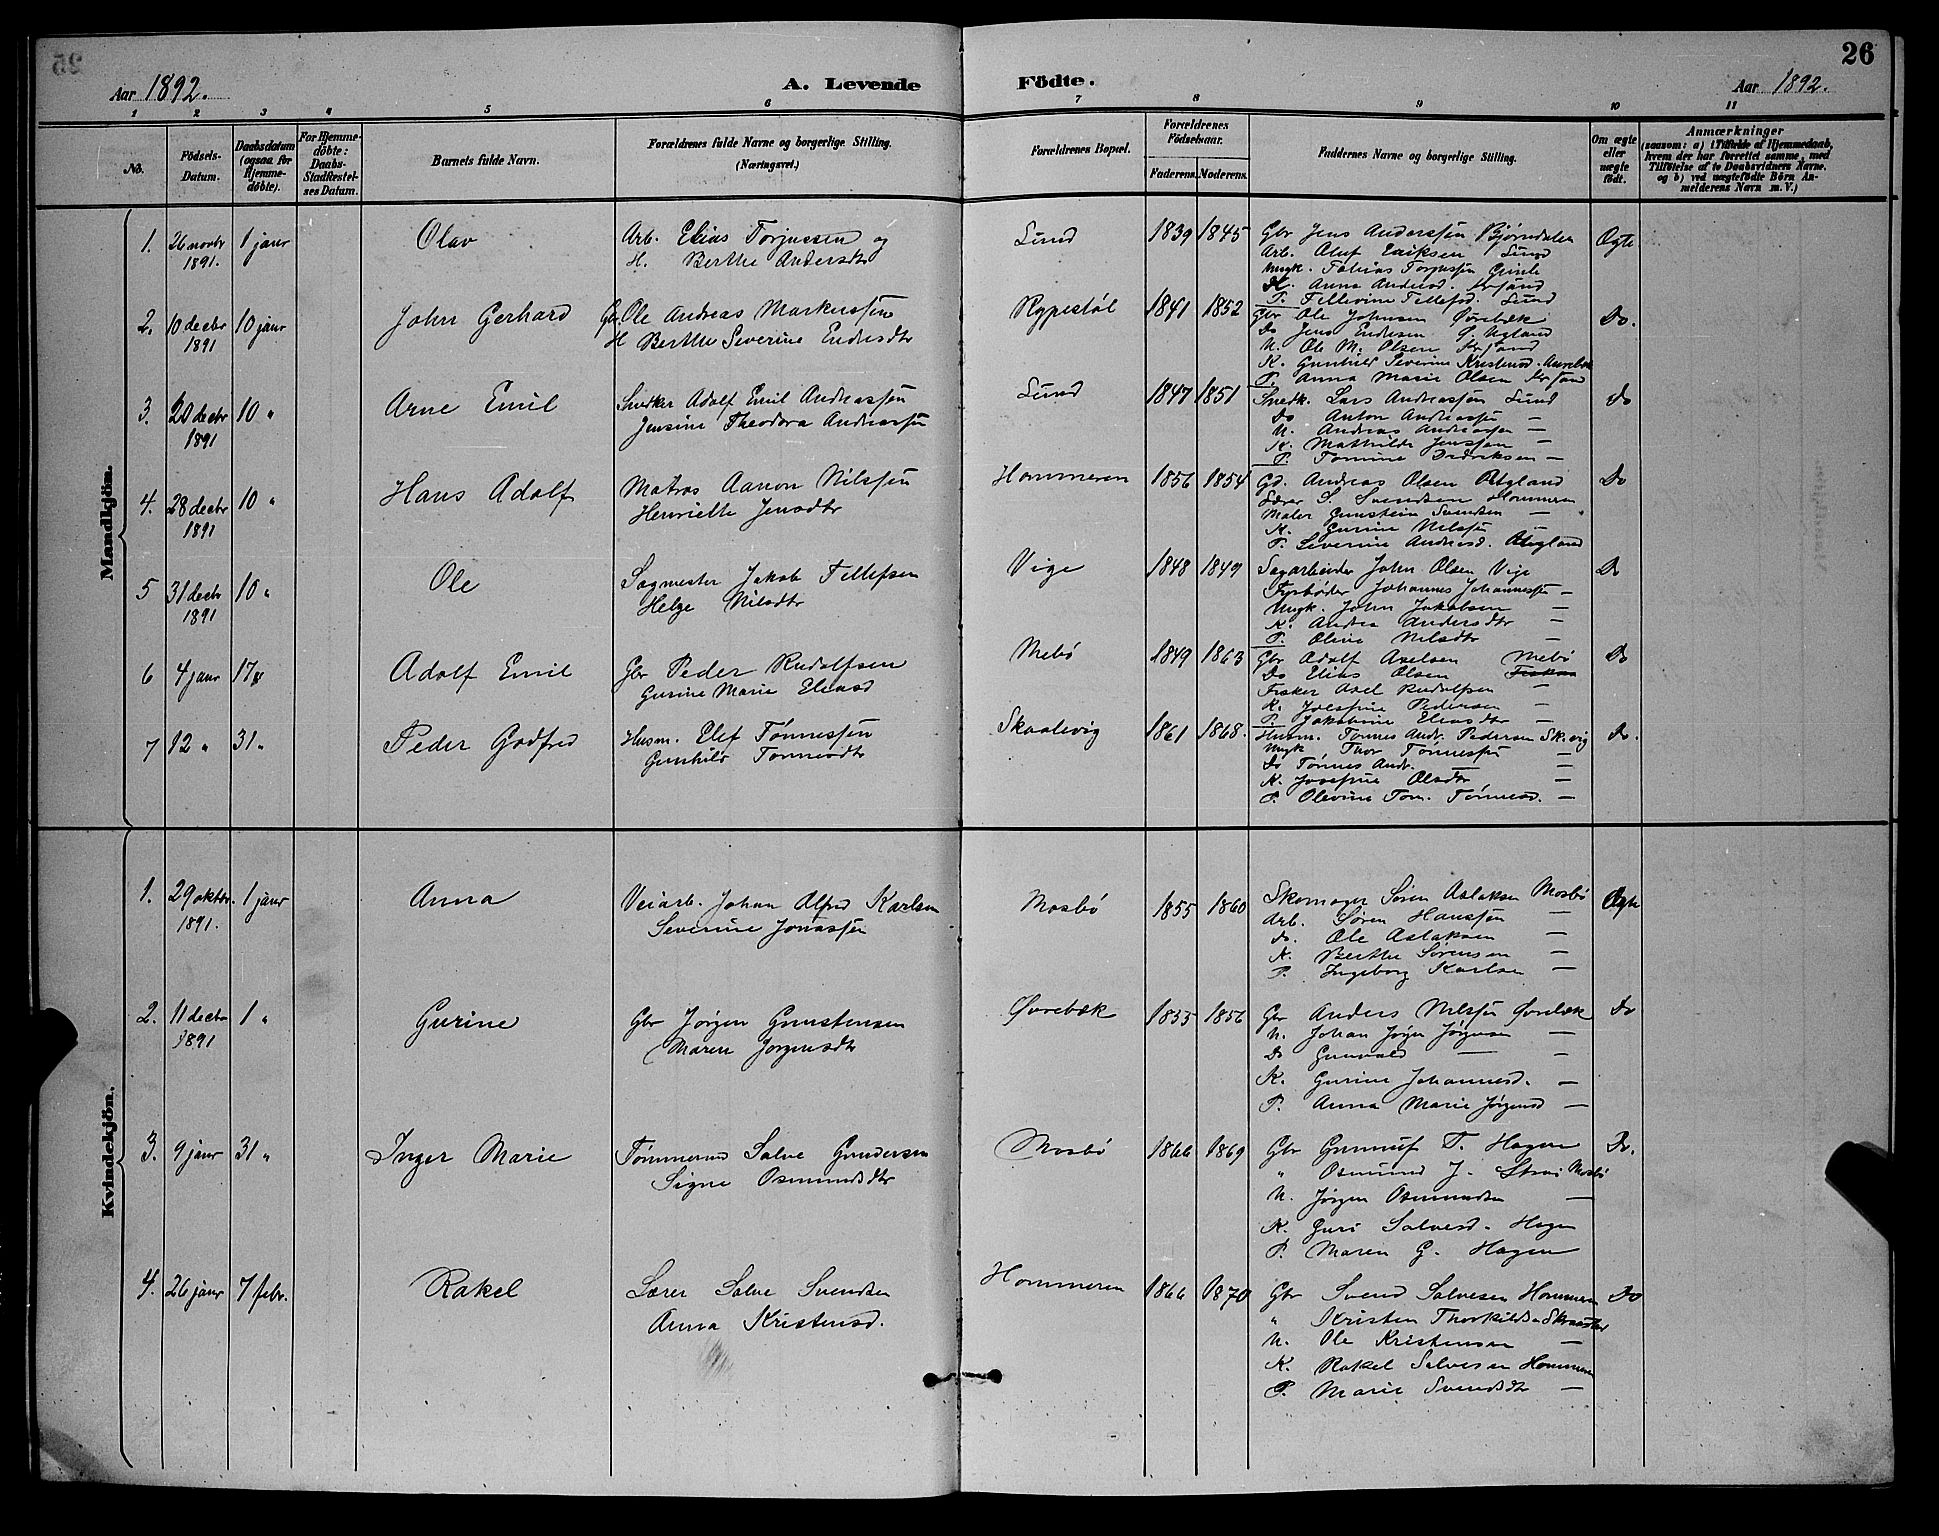 Aar 1892.
A. Levende Födte.
26
Aar 1892.
1 2 3 4 5 6 7 8 9 10 11
No.
Födsels-Datum.
Daabsdatum (ogsaa for Hjemme-döbte).
For Hjemme-döbte: Daabs-Stadfæstel-ses Datum.
Barnets fulde Navn.
Forældrenes fulde Navne og borgerlige Stilling. (Næringsvei.)
Forældrenes Bopæl.
Forældrenes Födselsaar.
Faderens. Moderens.
Faddernes Navne og borgerlige Stilling.
Om ægte eller uægte födt.
Anmærkninger
(saasom: a) i Tilfælde af Hjemmedaab, hvem der har forrettet samme, med Tilföielse af to Daabsvidners Navne, og b) ved uægtefödte Börn An-melderens Navn m. V.)
Mandkjön.
1. 26 novbr 1891. 1 janr Olav
Arb. Elias Torjussen og
H. Berthe Andersdtr
Lund 1839 1845
Gbr Jens Anderssen Bjørndalen
Arb. Oluf Eriksen Lund
Ungk. Tobias Torjussen Gimle
H. Anna Andersd. Krsand
P. Tellevine Tellefsd. Lund
Ægte
2. 10 decbr 1891 10 janr John Gerhard
Gbr. Ole Andreas Markussen
H Berthe Severine Endresdtr
Rypestøl 1841 1852
Gbr Ole Johnsen Øvrebæk
Do Jens Endresen
U. Ole M. Olsen Krsand
K. Gunhild Severine Kristensd.
P. Anna Marie Olsen Krsand
Do.
3. 20 decbr 1891 10 " Arne Emil
Snedker Adolf Emil Andreassen
Jensine Theodora Andreassen
Lund 1847 1851
Snedk. Lars Andreassen Lund
Do Anton Andreassen —
U. Andreas Andreassen —
K. Mathilde Jenssen —
P. Tomine Dedreksen —
do
4. 28 decbr 1891 10 " Hans Adolf
Matros Aanon Nilssen
Henriette Jensdtr
Hommeren 1856 1854
Gd. Andreas Olsen
Lærer S. Svendsen Hommeren
Maler Gunstein Svendsen —
K. Gurine Nilssen —
P. Severine Andreasd.
Do
5 31 decbr 1891 10 " Ole
Sagmester Jakob Tellefsen
Helge Nilsdtr
Vige 1848 1849
Sagarbeider John Olsen Vige
Fyrbøder Johannes Johannessen —
Ungk. John Jakobsen —
K. Andrea Andersdtr —
P. Oline Nilsdtr —
Do
6 4 janr 17 Adolf Emil
Gbr Peder Rudolfsen
Gurine Marie Eliasd
Mebø 1849 1863
Gbr Adolf Axelsen Mebø
Do Elias Olsen
Fisker Axel Rudolfsen —
K. Josefine Pedersen —
P. Jakobine Eliasdtr —
Do
7 12 " 31 " Peder Godfred
Husm. Elef Tønnessen
Gunhild Tønnesdtr
Skaalevig 1861 1868.
Husm. Tønnes Andr. Pedersen Sk.vig
Ungk Thor Tønnessen —
Do Tønnes Andr. —
K. Josefine Olsdtr —
P. Olevine Tom. Tønnesd. —
Do.
Kvindekjön.
1. 29 oktbr. 1891. 1 janr Anna
Veiarb. Johan Alfred Karlsen
Severine Jonassen
Mosbø 1855 1860
Skomager Søren Aslaksen Mosbø
Arb. Søren Hanssen —
Do. Ole Aslaksen —
K. Berthe Sørensen —
P. Ingeborg Karlsen —
Ægte
2. 11 decbr 1891 1 " Gurine
Gbr Jørgen Gunstensen
Maren Jørgensdtr
Øvrebæk 1855 1856
Gbr Anders Nilssen Øvrebæk
U. Johan Jørgen Jørgensen —
Do Gunvald — —
K. Gurine Johannesd. —
P. Anna Marie Jørgensd —
Do
3. 9 janr 31 " Inger Marie
Tømmermd Salve Gundersen
Signe Osmundsdtr
Mosbø 1866 1869
Gbr Gunnuf T. Hagen
" Osmund J. Strai Mosbø
U. Jørgen Osmundsen —
K. Guri Salvesd. Hagen
P. Maren G. Hagen
Do.
4. 26 janr 7 febr. Rakel
Lærer Salve Svendsen
Anna Kristensd.
Hommeren 1866 1870
Gbr Svend Salvesen Hommeren
" Kristen Thorkildsen
U. Ole Kristensen —
K. Rakel Salvesen Hommeren
P. Marie Svendsdtr —
Do